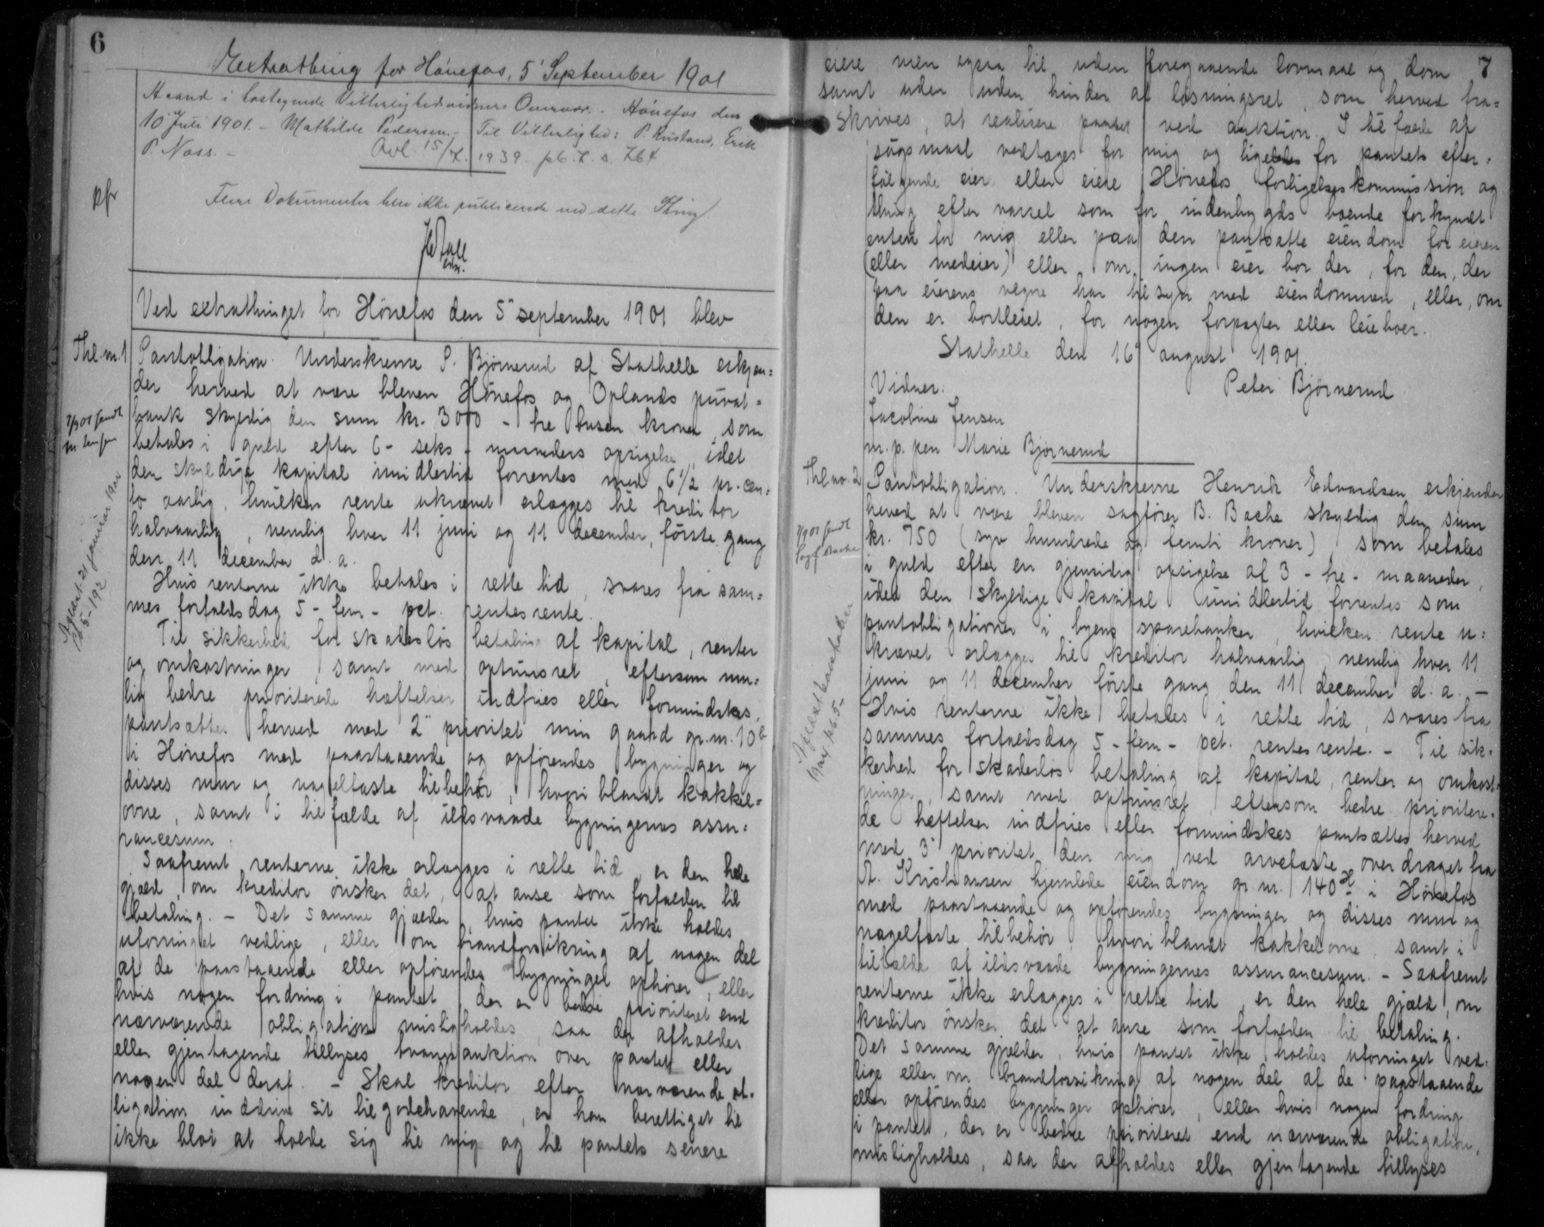 6
Extrathing for Hönefos, 5' September 1901
Haand i hosteynde Vitterlighedsvidners Overvær. Hönefos den
10 Juli 1901. - Mathilde Pedersen. - Til Vitterlighed: P. Rustand, Erik
P. Næss. - Avl. 15/4. 1939. pb. L. s. 764
Flere Dokumenter blev ikke publicerede ved dette Thing
Ved extrathinget for Hönefos den 5' september 1901 blev
Thl. nr. 1
Pantobligation. Underskrevne P. Björnerud af Stathelle erkjen=
der herved at være bleven Hönefos og Oplands privat=
bank skyldig den sum kr. 3000 - tre tusen kroner, som
betales i guld efter 6 - seks - maaneders opsigelse, idet
den skyldige kapital imidlertid forrentes med 6 1/2 pr. cen=
to aarlig, hvilken rente ukrævet erlægges til kreditor
halvaarlig, nemlig hver 11 juni og 11 december, förste gang
den 11 december d. a.
Hvis renterne ikke betales i rette tid, svares fra sam=
mes forfaldsdag 5 - fem - pct. rentesrente.
Til sikkerhed for skadeslös betaling af kapital, renter
og omkostninger, samt med optrinsret, eftersom mu=
lig bedre prioriterede heftelser indfries eller formindskes,
pantsættes herved med 2' prioritet min gaard gr. nr. 10 b
i Hönefos med paastaaende og opförendes bygninger og
disses mur og nagelfaste tilbehör, hvori blandt kakkel=
ovne, samt i tilfælde af ildsvaade bygningernes assu=
rancesum.
Saafremt renterne ikke erlægges i rette tid, er den hele
gjæld, om kreditor önsker det, at anse som forfalden til
betaling. - Det samme gjælder, hvis pantet ikke holdes
uforringet vedlige, eller om brandforsikring af nogen del
af de paastaaende eller opförendes bygninger ophörer, eller
hvis nogen fordring i pantet, der er bedre prioriteret end
nærværende obligation misligholdes, saa der afholdes
eller gjentagende tillyses tvangsauktion over pantet eller
nogen del deraf. - Skal kreditor efter nærværende ob=
ligation inddrive sit tilgodehavende, er han berettiget til
ikke blot at holde sig til mig og til pantets senere
7
eiere men ogsaa til uden foregaaende lovmaal og dom
samt uden uden hinder af lösningsret, som herved fra=
skrives, at realisere pantet ved auktion. I tilfælde af
sögsmaal vedtages for mig og ligeledes for pantets efter=
fölgende eier eller eiere Hönefos forligelseskommission og
thing efter varsel som for indenbygds boende forkyndt
enten for mig eller paa den pantsatte eiendom for eieren
(eller medeier) eller om ingen eier bor der, for den, der
paa eierens vegne har tilsyn med eiendommen, eller, om
den er bortleiet, for nogen forpagter eller leieboer.
Stathelle den 16' august 1901.
Vidner: Peter Björnerud
Jacobine Jensen
m. p. pen Marie Björnerud
Thl. nr. 2
Pantobligation. Underskrevne Henrik Edvardsen erkjender
herved at være bleven sagförer B. Bache skyldig den sum
kr. 750 (syv hundrede og femti kroner), som betales
i guld efter en gjensidig opsigelse af 3 - tre - maaneder,
idet den skyldige kapital imidlertid forrentes som
pantobligationer i byens sparebanker, hvilken rente u=
krævet erlægges til kreditor halvaarlig, nemlig hver 11
juni og 11 december förste gang den 11 december d. a. -
Hvis renterne ikke betales i rette tid, svares fra
sammes forfaldsdag 5 - fem - pct. rentesrente. - Til sik=
kerhed for skadeslös betaling af kapital, renter og omkost=
ninger, samt med optrinsret, eftersom bedre prioritere=
de heftelser indfries eller formindskes pantsættes herved
med 3' prioritet den mig ved arvefæste overdraget fra
A. Kristiansen hjemlede eiendom gr. nr. 140 H i Hönefos
med paastaaende og opförendes bygninger og disses mur og
nagelfaste tilbehör, hvori blandt kakkelovne, samt i
tilfælde af ildsvaade bygningernes assurancesum. - Saafremt
renterne ikke erlægges i rette tid, er den hele gjæld, om
kreditor önsker det at anse som forfalden til betaling.
Det samme gjælder, hvis pantet ikke holdes uforringet ved=
lige eller om brandforsikring af nogen del af de paastaaende
eller opförendes bygninger ophörer, eller hvis nogen fordring
i pantet, der er bedre prioriteret end nærværende obligation,
misligholdes, saa der afholdes eller gjentagende tillyses